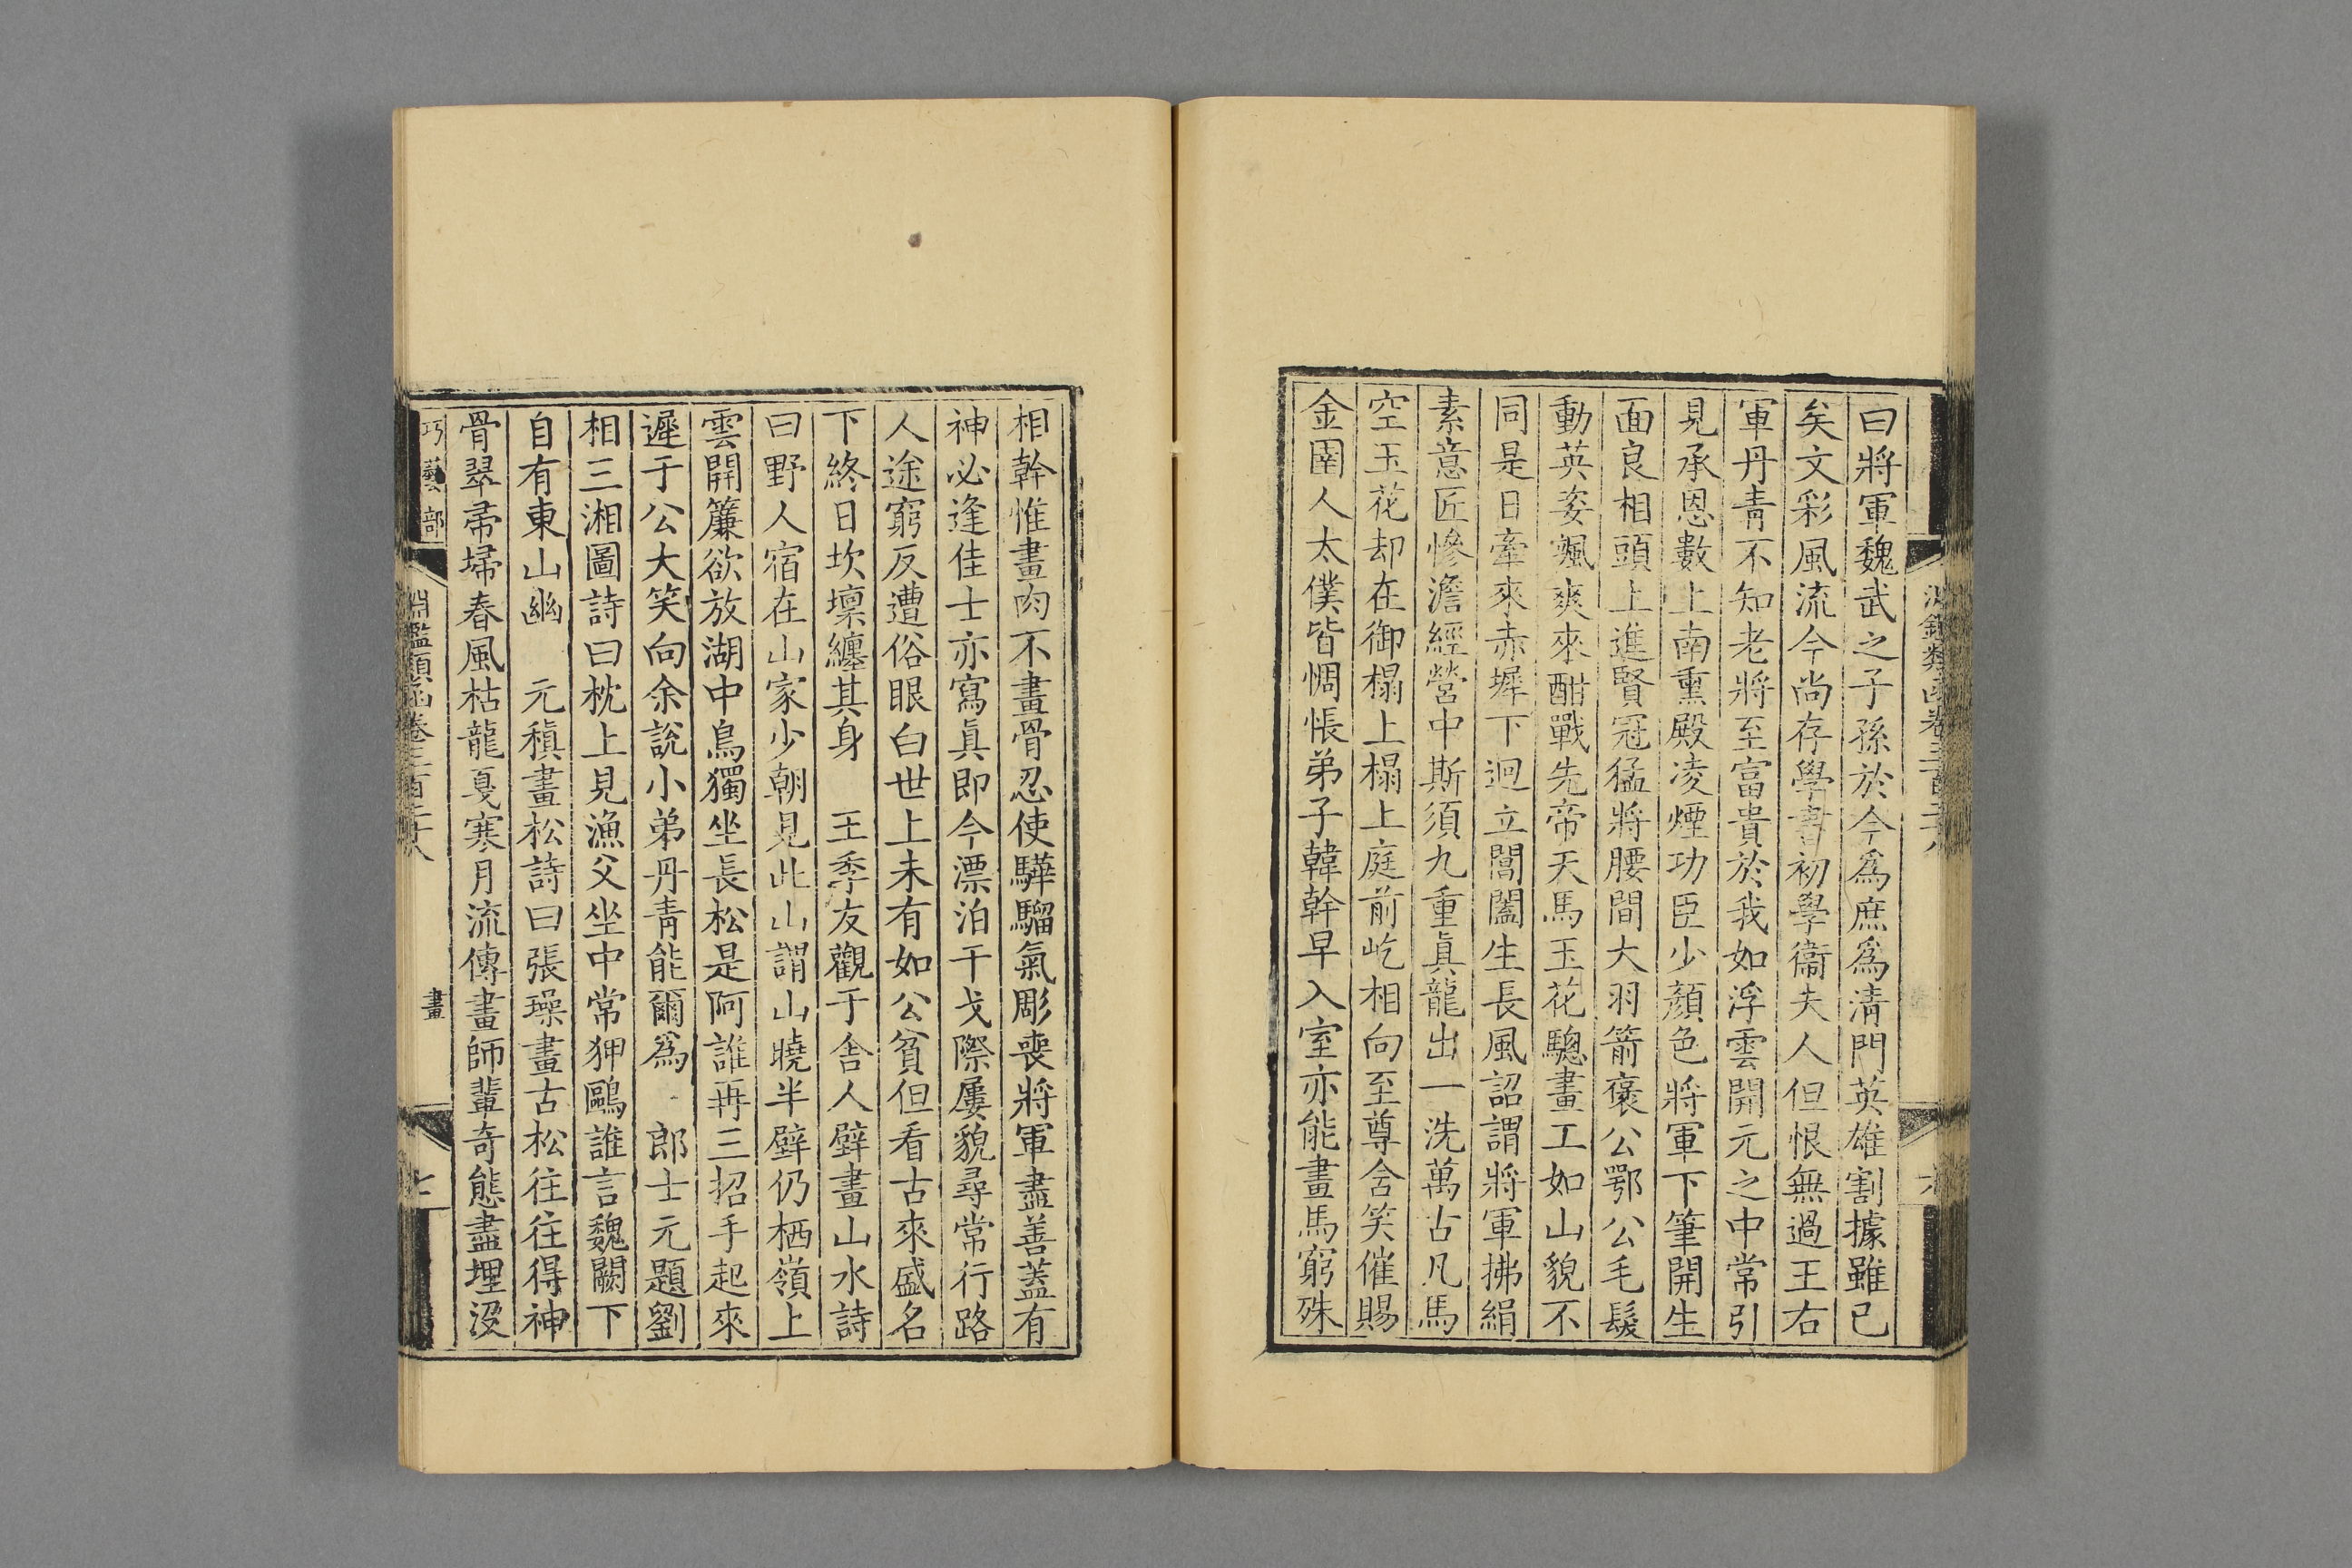 曰將軍魏武之子孫於今爲庶爲淸門英雄割據雖已
矣文彩風流今尚存學書初學衞夫人但恨無過王右
軍丹靑不知老將至富貴於我如浮雲開元之中常引
見承恩數上南熏殿凌煙功臣少顏色將軍下筆開生
面良相頭上進賢冠猛將腰間大羽箭褒公鄂公毛髮
動英姿颯爽來酣戰先帝天馬玉花驄畫工如山貌不
同是日牽來赤墀下迥立閶闔生長風詔謂將軍拂絹
素意匠慘澹經營中斯須九重眞龍出一洗萬古凡馬
空玉花却在御榻上榻上庭前屹相向至尊含笑催賜
金圉人太僕皆惆悵弟子韓幹早入室亦能畫馬窮殊
相幹惟畫肉不畫骨忍使驊騮氣彫喪將軍盡善蓋有
神必逢佳士亦寫眞即今漂泊干戈際屢貌尋常行路
人途窮反遭俗眼白世上未有如公貧但看古來盛名
下終日坎壈纏其身　王季友觀于舍人壁畫山水詩
曰野人宿在山家少朝見此山謂山曉半壁仍栖嶺上
雲開簾欲放湖中鳥獨坐長松是阿誰再三招手起來
遲于公大笑向余說小弟丹靑能爾爲　郎士元題劉
相三湘圖詩曰枕上見漁父坐中常狎鷗誰言魏闕下
自有東山幽　元稹畫松詩曰張璪畫古松往往得神
骨翠帚埽春風枯龍戛寒月流傳畫師輩奇態盡埋沒
巧藝部
淵鑑類函卷三百二十八
畫